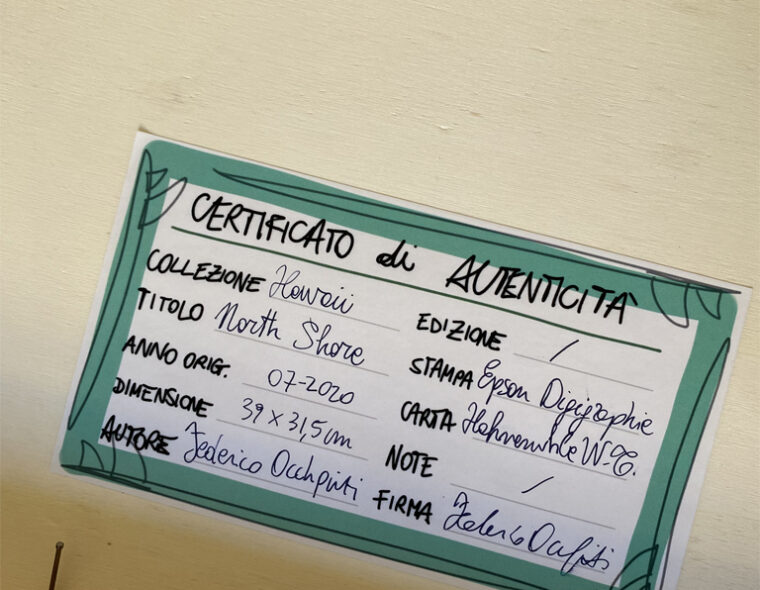 CERTIFICATO di AUTENTICITÀ
COLLEZIONE Hawaii
TITOLO North Shore
ANNO ORIG. 07-2020
DIMENSIONE 39 x 31,5 cm
AUTORE Federico Occhpinti
EDIZIONE /
STAMPA Epson Digigraphie
CARTA Hahnemühle W.T.
NOTE /
FIRMA Federico